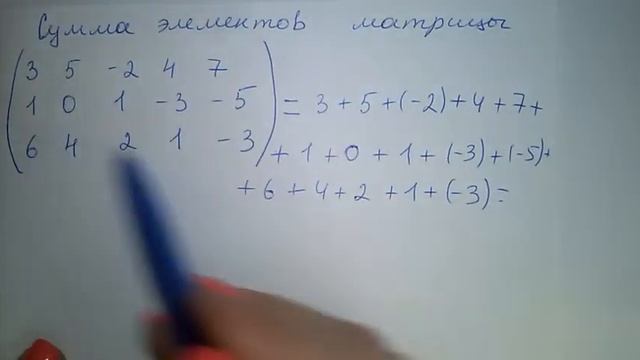 Сумма элементов матрицы
3 5 -2 4 7
1 0 1 -3 -5 = 3+5+(-2)+4+7+
6 4 2 1 -3 +1+0+1+(-3)+(-5)+
+6+4+2+1+(-3)=